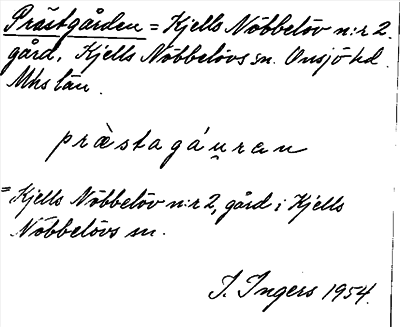 Prästgården = Kjells Nöbbelöv n:r 2.
gård, Kjells Nöbbelövs sn. Onsjö hd.
Mhs län.
præ̀stagáu̯ran
= Kjells Nöbbelöv n:r 2, gård i Kjells
Nöbbelövs sn.
I. Ingers 1954.